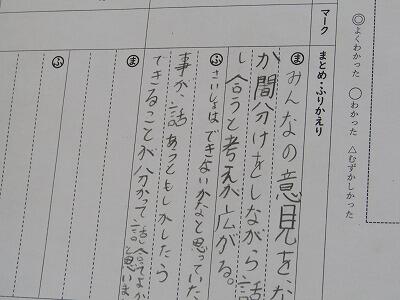 ◎よくわかった ○わかった △むずかしかった
マーク まとめ・ふりかえり
ま みんなの意見をた
が間分けをしながら話
し合うと考えが広がる。
ふ さいしょはできないかなと思っていた
事が、話あってもしかしたら
ま できることが分かって話合てよか
と思いま
ふ